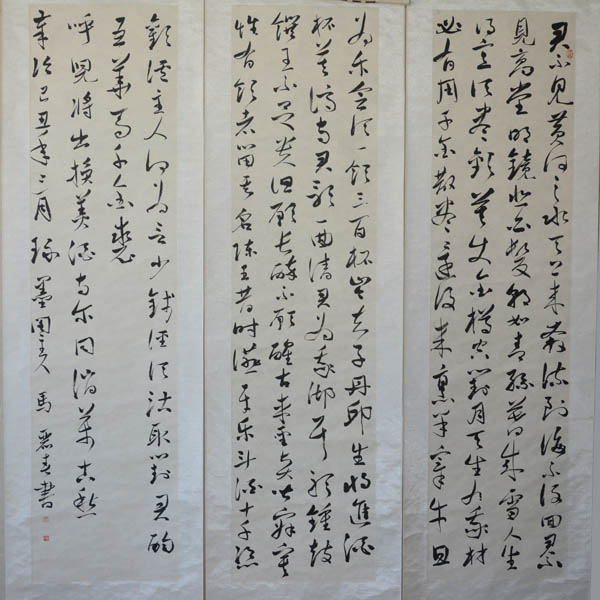 君不見黃河之水天上來奔流到海不復回君不
見高堂明鏡悲白髮朝如青絲暮成雪人生
得意須盡歡莫使金樽空對月天生我材
必有用千金散盡還復來烹羊宰牛且
為樂會須一飲三百杯岑夫子丹邱生將進酒
杯莫停與君歌一曲請君為我傾耳聽鐘鼓
饌玉不足貴但願長醉不願醒古來聖賢皆寂寞
惟有飲者留其名陳王昔時讌平樂斗酒十千恣
歡謔主人何為言少錢徑須沽取對君酌
五華馬千金裘
呼兒將出換美酒與爾同消萬古愁
己丑年三月 墨園主人 馬 書